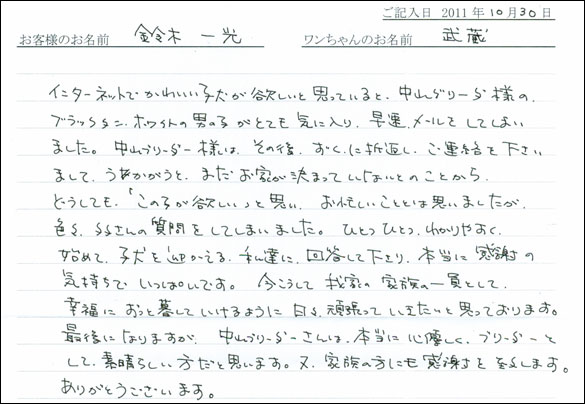 ご記入日 2011年10月30日
お客様のお名前 鈴木 一光 ワンちゃんのお名前 武蔵
インターネットでかわいい子犬が欲しいと思っていると、中山ブリーダー様の、
ブラックタン、ホワイトの男の子がとても気に入り、早速、メールをしてしまい
ました。中山ブリーダー様は、その後、すぐに折返し、ご連絡を下さい
まして、うかがうと、まだお家が決まっていないとのことから、
どうしても、「この子が欲しい」と思い、お忙しいこととは思いましたが、
色々、の質問をしてしまいました。ひとつひとつ、わかりやすく、
始めて、子犬を迎かえる、私達に、回答して下さり、本当に感謝の
気持ちでいっぱいです。今こうして我家の家族の一員として、
幸福におっと暮していけるように日々、頑張っていきたいと思っております。
最後になりますが、中山ブリーダーさんは、本当に心優しく、ブリーダーと
して、素晴らしい方だと思います。又、家族の方にも感謝を致します。
ありがとうございます。